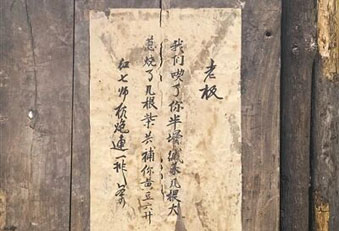 老板
我们吃了你半坛咸菜几根大
葱烧了几根柴共补你黄豆六升
红七师机炮连一排留